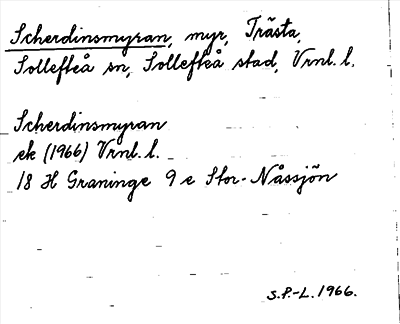 Scherdinsmyran, myr, Trästa,
Sollefteå sn, Sollefteå stad, Vrnl. l.
Scherdinsmyran
ek (1966) Vrnl. l.
18 H Graninge 9 e Stor-Nåssjön
S.P.-L. 1966.